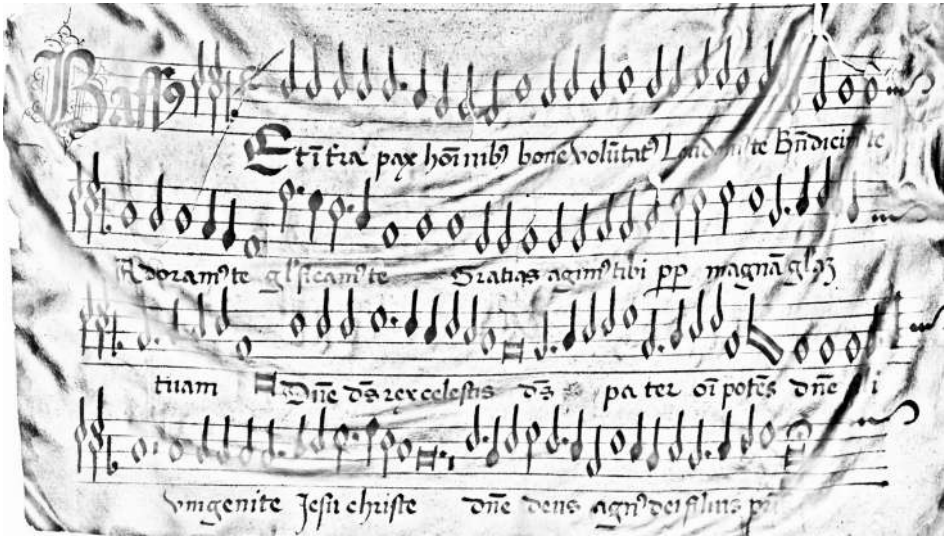 Bassus
Et ī t̄ra pax hoīnibꝰ bone volūtatꝭ Laudamꝰ te Bn̄dicimꝰ te
Adoramꝰ te gl̄ificamꝰ te Gratias agimꝰ tibi pp magnā gl̄aꝫ
tuam Dn̄e ds̄ rex celestis ds̄ pater oī potēs dn̄e
vnigenite Jesu christe dn̄e deus agnꝰ dei filius